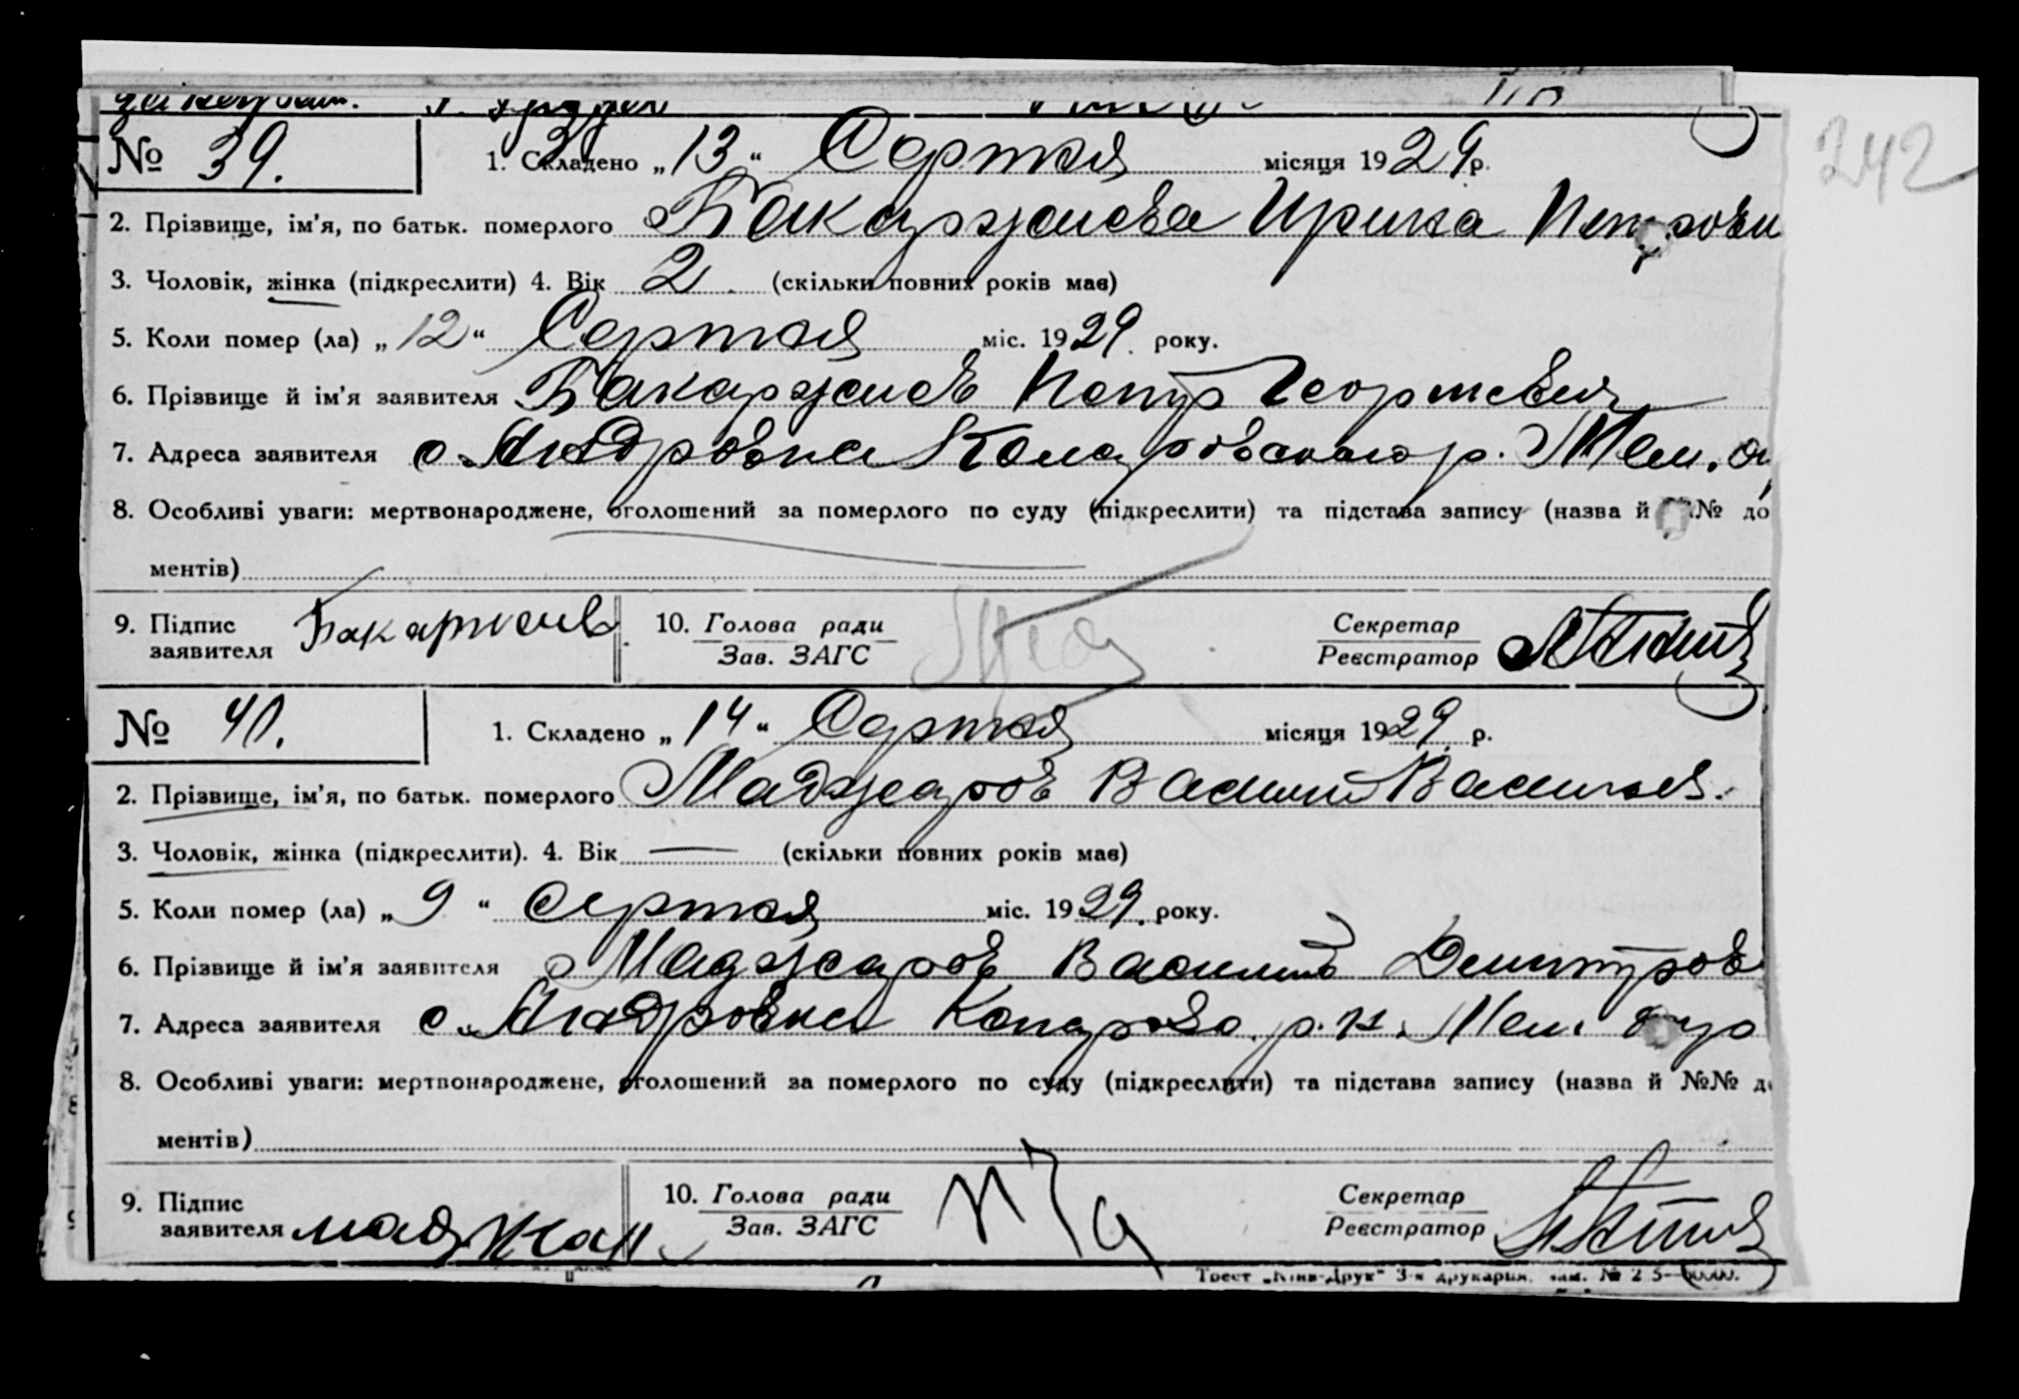 № 39. 1. Складено „13“ Сертня місяця 1929 р.
2. Прізвище, ім'я, по батьк. померлого Бакарджиева Ирина Петровн
3. Чоловік, жінка (підкреслити) 4. Вік 2 (скільки повних років має)
5. Коли помер (ла) „12“ Сертня міс. 1929. року.
6. Прізвище й ім'я заявителя Бакарджиев Петр Георгиевич
7. Адреса заявителя с. Андровка р. Мел. ок
8. Особливі уваги: мертвонароджене, оголошений за померлого по суду (підкреслити) та підстава запису (назва й №№ до
ментів)
9. Підпис заявителя 10. Голова ради Зав. ЗАГС Секретар Реєстратор
№ 40. 1. Складено „14“ Сертня місяця 1929 р.
2. Прізвище, ім'я, по батьк. померлого Маджаров Василий Васильев.
3. Чоловік, жінка (підкреслити). 4. Вік — (скільки повних років має)
5. Коли помер (ла) „9“ Сертня міс. 1929. року.
6. Прізвище й ім'я заявителя Маджаров Василий Дмитров
7. Адреса заявителя с. Андровка р.н. Мел.
8. Особливі уваги: мертвонароджене, оголошений за померлого по суду (підкреслити) та підстава запису (назва й №№ д
ментів)
9. Підпис заявителя маджар 10. Голова ради Зав. ЗАГС Секретар Реєстратор
Трест „Київ-Друк“ 3-я друкарня.
242